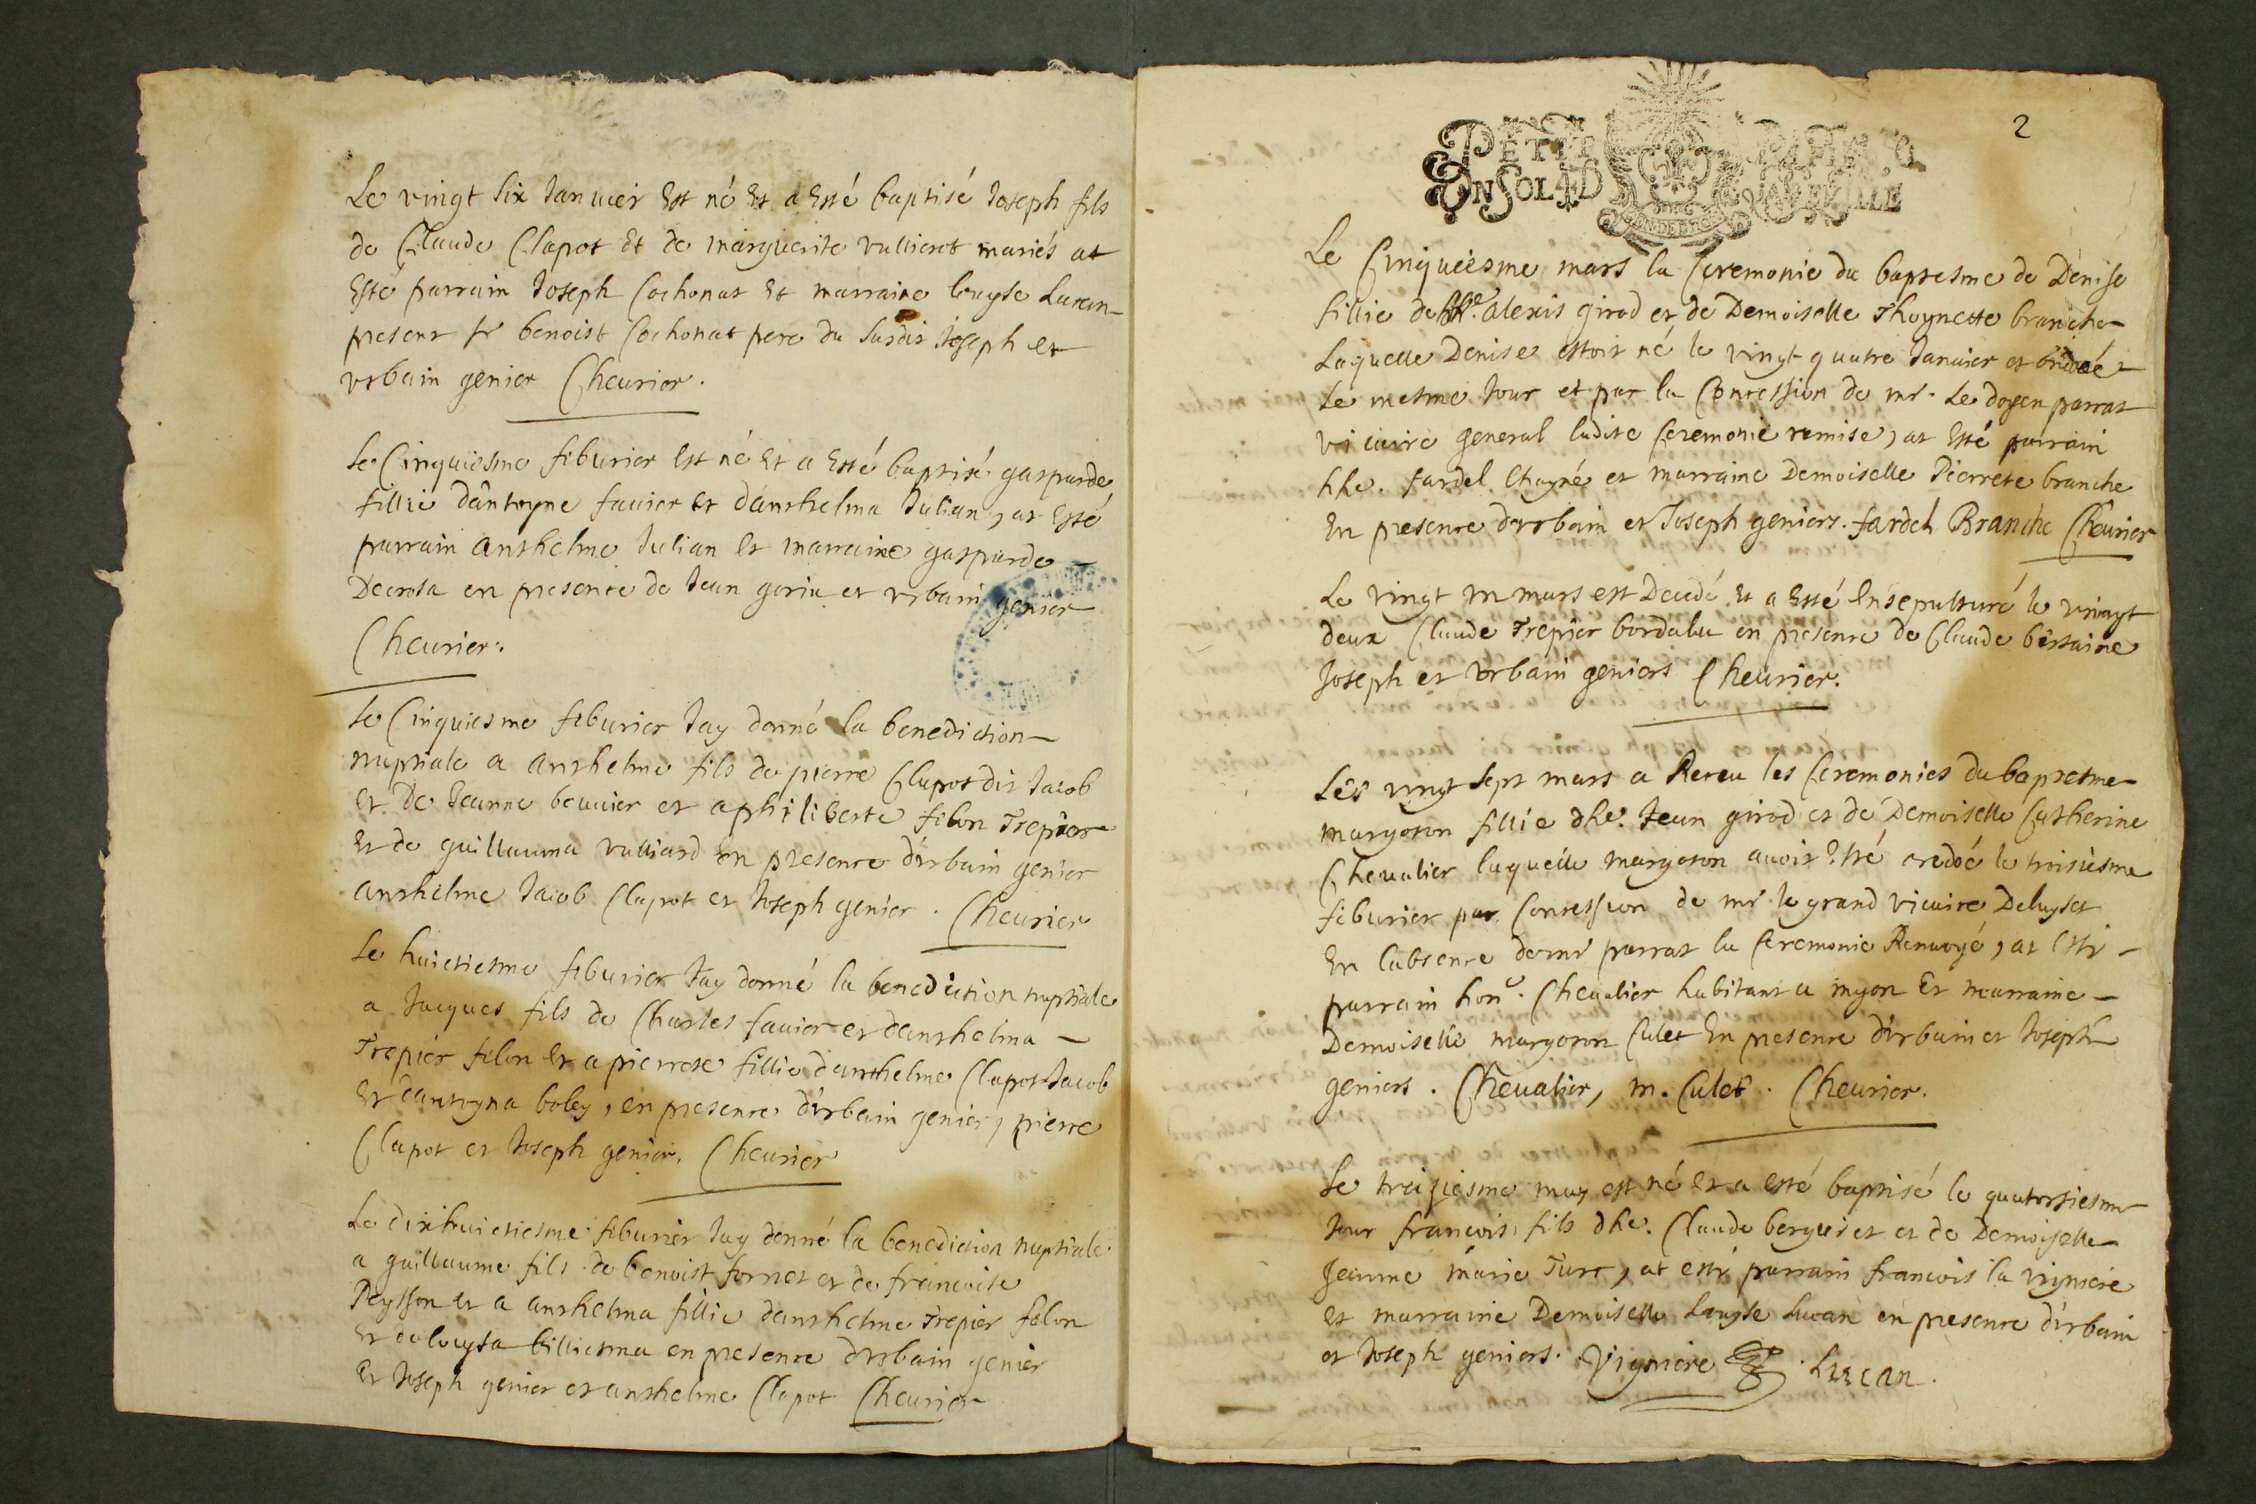 Le vingt six Januier Est né Et a Esté baptisé Joseph fils
de Claude Clapot Et de marguerite vullierot mariés at
Esté parrain Joseph Cochonat Et marraine louyse Lucan
present sr benoist Cochonat pere du susdit Joseph et
vrbain genier Cheurier.
Le Cinquiesme feburier Est né Et a Esté baptisé gasparde
fillie dantoyne fauier et danthelma Julian, at Esté
parrain anthelme Julian Et marraine gasparde
Decrosa en presence de Jean gorin et vrbain genier
Cheurier.
Le Cinquiesme feburier Jay donné la benediction
nuptiale a anthelme fils de pierre Clapot dit Jacob
Et De Jeanne bouuier et a philiberte felon Trepier
Et de guillauma vulliard en presence d'vrbain genier
anthelme Jacob Clapot et Joseph genier. Cheurier
Le huictiesme feburier Jay donné la benediction nuptiale
a Jacques fils de Charles fauier et danthelma
Trepier felon Et a pierrete fillie danthelme Clapot Jacob
Et dantoyna boley, en presence d'vrbain genier, pierre
Clapot et Joseph genier. Cheurier
Le dixhuictiesme feburier Jay donné la benediction nuptiale
a guillaume fils de benoist fornet et de francoise
Peysson et a anthelma fillie danthelme Trepier felon
Et de louysa billiema en presence d'vrbain genier
Et Joseph genier et anthelme Clapot Cheurier
2
PETIT PAPIER
ON SOL 4D LA FEUILLE
Le Cinquiesme mars la Ceremonie du baptesme de Denise
fillie de hle. alexis girod et de Demoiselle Thoynette branche
Laquelle Denise estoit né le vingt quatre Januier et
Le mesme Jour et par la Concession de mr. Le doyen parrat
vicaire general ladite Ceremonie remise, at Esté parrain
hle. fardel Chayné et marraine Demoiselle Pierrete branche
En presence d'vrbain et Joseph geniers. fardel Branche Cheurier
Le vingt vn mars est Decedé Et a Esté Ensepulturé le vingt
deux Claude Trepier bordabu en presence de Claude bertaine
Joseph et vrbain geniers Cheurier.
Les vingt Sept mars a Receu les Ceremonies du baptesme
margoton fillie dhe. Jean girod et de Demoiselle Catherine
Cheualier laquelle margoton auoit Esté le troisiesme
feburier par Concession de mr le grand vicaire Deluyset
En labsence de mr parrat la Ceremonie Renuoyé, at Esté
parrain hon. Cheualier habitant a myon Et marraine
Demoiselle margoton Culet En presence d'vrbain et Joseph
geniers. Cheualier, m. Culet. Cheurier.
Le treiziesme may est né et a esté baptisé le quatorsiesme
Jour francois fils dhe. Claude berguiet et de Demoiselle
Jeanne marie Turc, at esté parrain francois la vigniere
et marraine Demoiselle Louyse Lucan en presence d'vrbain
et Joseph geniers. Vigniere. Lucan.